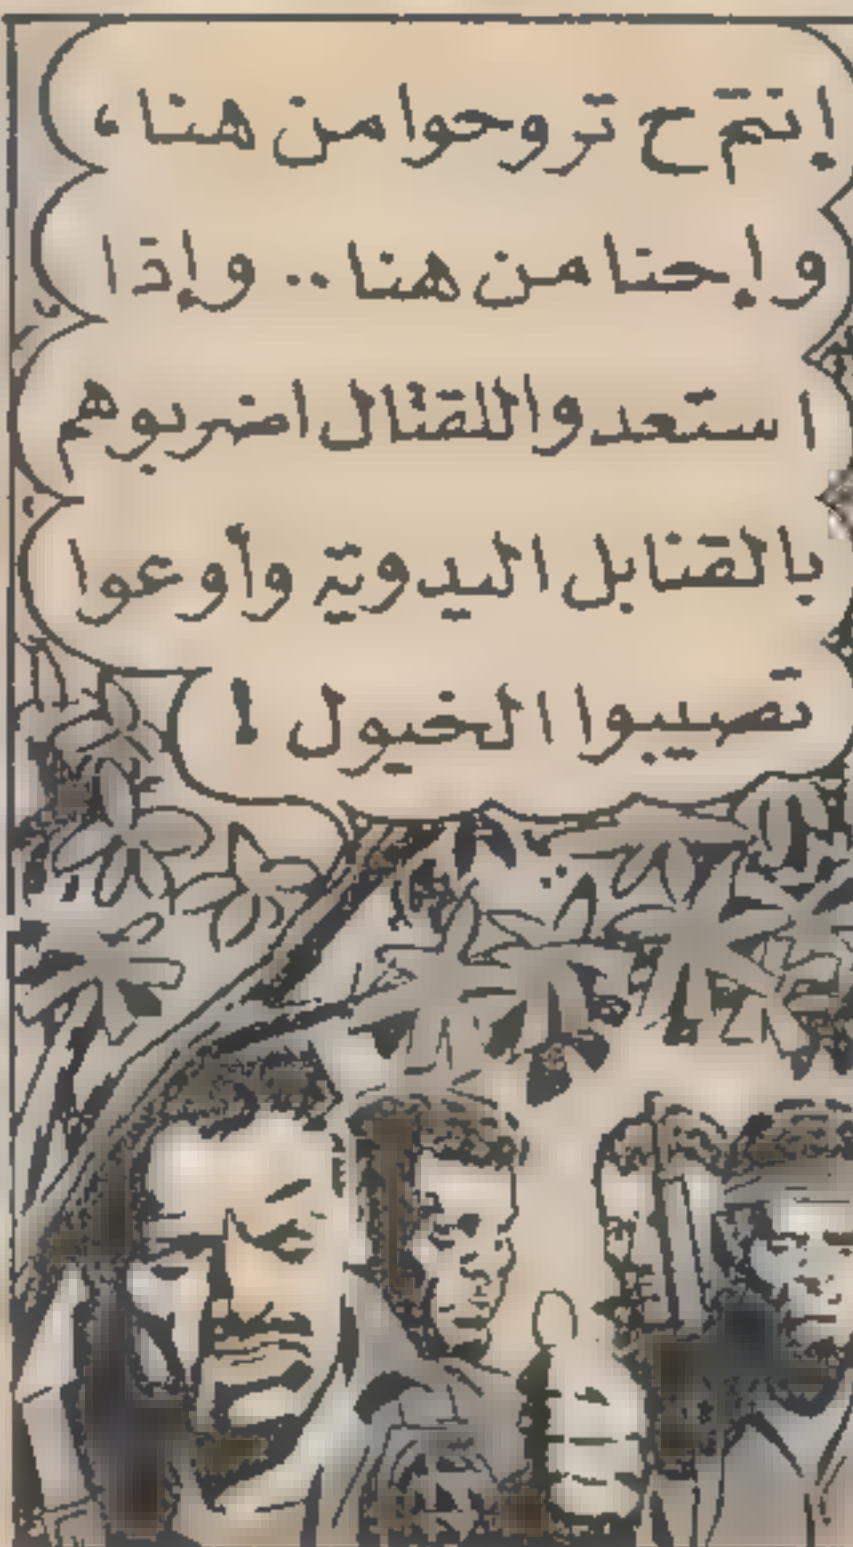 إنتمّ ح تروحوا من هنا،
وإحنا من هنا .. وإذا
استعدوا للقتال اضربوهم
بالقنابل اليدوية وأوعوا
تصيبوا الخيول !